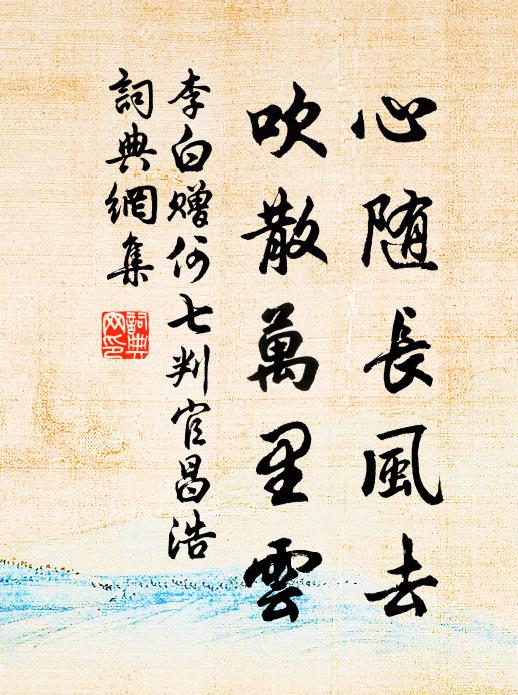 心随長風去
吹散萬里雲
李白赠何七判官昌浩
詞典網集
詞典
网印